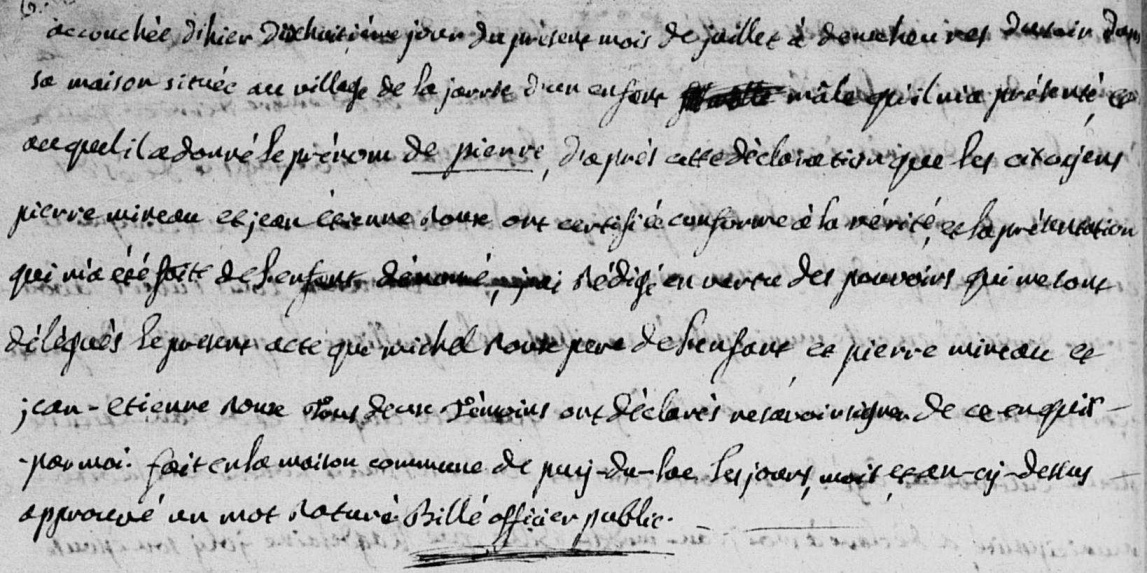 accouchée d'hier dixhuitième jour du present mois de juillet à deux heures du soir dans
sa maison située au village de la jarrie d'un enfant mâle qu'il m'a présenté, et
auquel il a donné le prénom de pierre, d'après cette déclaration que les citoyens
pierre mineau et jean étienne roux ont certifiée conforme à la vérité, et la présentation
qui m'a été faite de l'enfant dénomé, j'ai rédigé en vertu des pouvoirs qui me sont
délégués le present acte que michel roux pere de l'enfant et pierre mineau et
jean-etienne roux tous deux témoins ont déclarés ne savoir signer de ce enquis
-par moi. fait en la maison commune de puy-du-lac les jours, mois, et an-cy-dessus
approuvé un mot raturé Billé officier public.